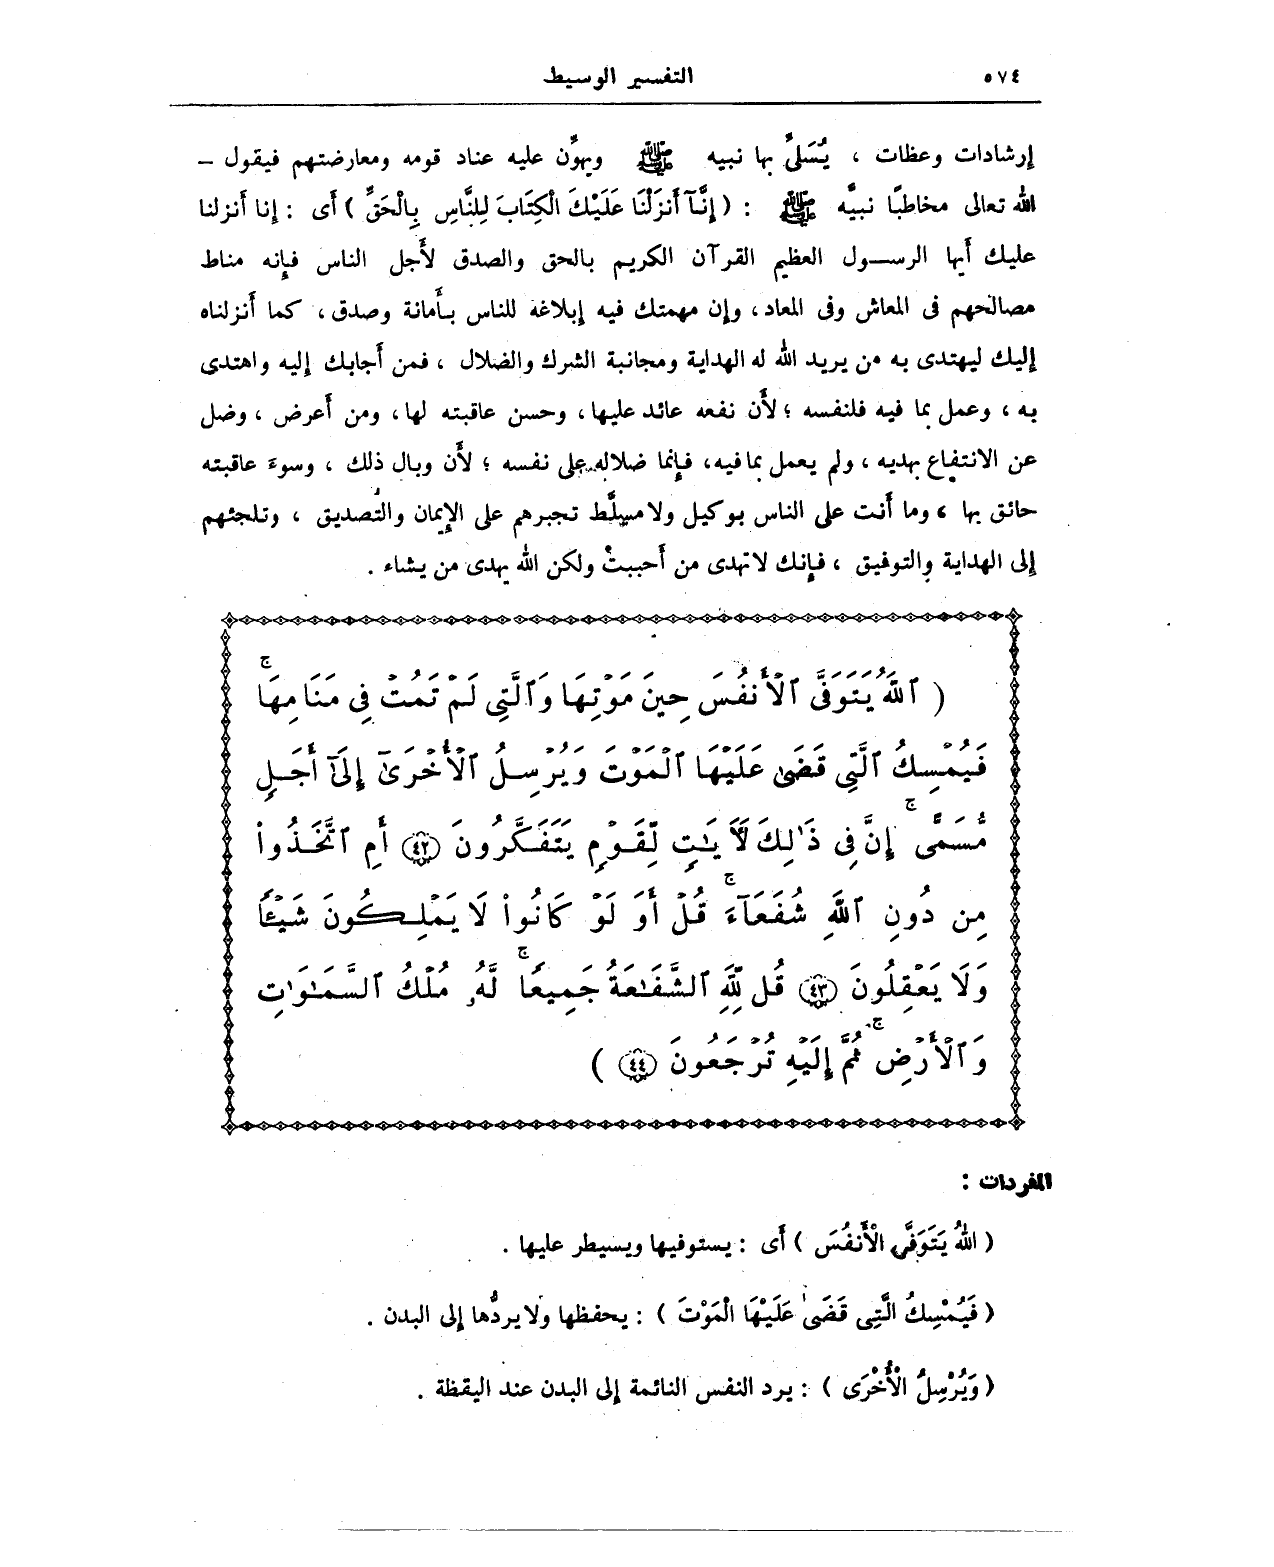 ٥٧٤
التفسير الوسيط
إرشادات وعظات ، يُسَلىِّ بها نبيه ﷺ ويهوِّن عليه عناد قومه ومعارضتهم فيقول –
الله تعالى مخاطبًا نبيَّه ﷺ : ( إِنَّآ أَنزَلْنَا عَلَيْكَ الْكِتَابَ لِلنَّاسِ بِالْحَقِّ ) أى : إنا أنزلنا
عليك أيها الرسول العظيم القرآن الكريم بالحق والصدق لأجل الناس فإنه مناط
مصالحهم فى المعاش وفى المعاد ، وإن مهمتك فيه إبلاغه للناس بأمانة وصدق ، كما أنزلناه
إليك ليهتدى به من يريد الله له الهداية ومجانبة الشرك والضلال ، فمن أجابك إليه واهتدى
به ، وعمل بما فيه فلنفسه ؛ لأن نفعه عائد عليها ، وحسن عاقبته لها ، ومن أعرض ، وضل
عن الانتفاع بهديه ، ولم يعمل بما فيه ، فإنما ضلاله على نفسه ؛ لأن وبال ذلك ، وسوء عاقبته
حائق بها ، وما أنت على الناس بوكيل ولا مسلَّط تجبرهم على الإيمان والتصديق ، وتلجئهم
إلى الهداية والتوفيق ، فإنك لا تهدى من أحببتْ ولكن الله يهدى من يشاء .
( ٱللَّهُ يَتَوَفَّى ٱلْأَنفُسَ حِينَ مَوْتِهَا وَٱلَّتِى لَمْ تَمُتْ فِى مَنَامِهَا ۖ
فَيُمْسِكُ ٱلَّتِى قَضَىٰ عَلَيْهَا ٱلْمَوْتَ وَيُرْسِلُ ٱلْأُخْرَىٰٓ إِلَىٰٓ أَجَلٍ
مُّسَمًّى ۚ إِنَّ فِى ذَٰلِكَ لَأٓيَٰتٍ لِّقَوْمٍ يَتَفَكَّرُونَ ﴿٤٢﴾ أَمِ ٱتَّخَذُواْ
مِن دُونِ ٱللَّهِ شُفَعَآءَ ۚ قُلْ أَوَ لَوْ كَانُواْ لَا يَمْلِكُونَ شَيْـًٔا
وَلَا يَعْقِلُونَ ﴿٤٣﴾ قُل لِّلَّهِ ٱلشَّفَٰعَةُ جَمِيعًا ۖ لَّهُۥ مُلْكُ ٱلسَّمَٰوَٰتِ
وَٱلْأَرْضِ ۖ ثُمَّ إِلَيْهِ تُرْجَعُونَ ﴿٤٤﴾ )
المفردات :
( اللهُ يَتَوَفَّى الْأَنفُسَ ) أى : يستوفيها ويسيطر عليها .
( فَيُمْسِكُ الَّتِى قَضَىٰ عَلَيْهَا الْمَوْتَ ) : يحفظها ولا يردُّها إلى البدن .
( وَيُرْسِلُ الْأُخْرَى ) : يرد النفس النائمة إلى البدن عند اليقظة .